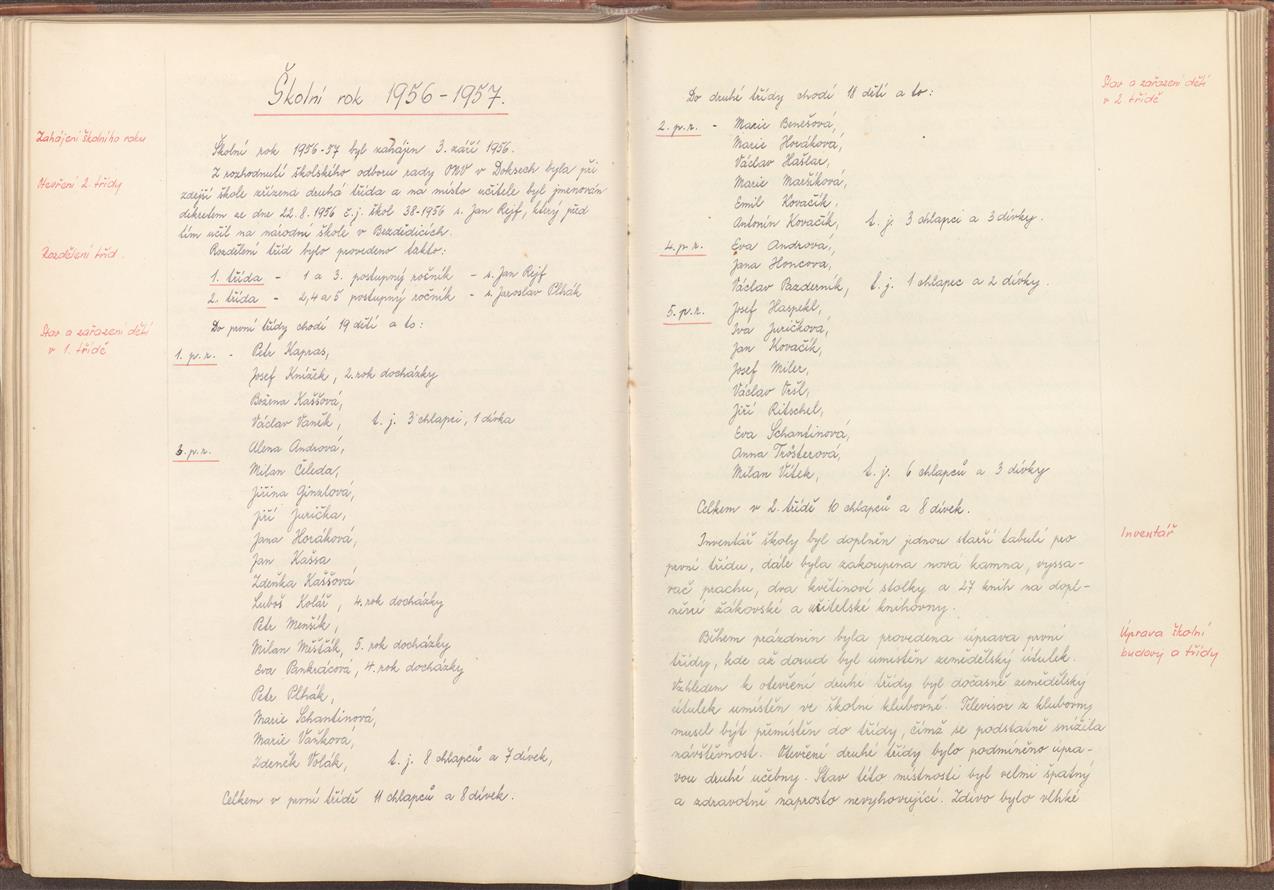 Školní rok 1956-1957.
Zahájení školního roku
Školní rok 1956-57 byl zahájen 3. září 1956.
Otevření 2. třídy
Z rozhodnutí školského odboru rady ONV v Doksech byla při
zdejší škole zřízena druhá třída a na místo učitele byl jmenován
dekretem ze dne 22.8.1956 č.j. škol 38-1956 s. Jan Rejf, který před
tím učil na národní škole v Bezdědicích.
Rozdělení tříd.
Rozdělení tříd bylo provedeno takto:
1. třída - 1 a 3. postupný ročník - s. Jan Rejf
2. třída - 2,4 a 5 postupný ročník - s. Jaroslav Plhák
Stav a zařazení dětí
v 1. třídě
Do první třídy chodí 19 dětí a to:
1. p.r. - Petr Kapras,
Josef Knížek, 2. rok docházky
Božena Kaššová,
Václav Vaněk, t. j. 3 chlapci, 1 dívka
3. p.r. Alena Andrová,
Milan Čeleda,
Jiřina Ginzlová,
Jiří Jurička,
Jana Horáková,
Jan Kašša
Zdeňka Kaššová
Luboš Kolář, 4. rok docházky
Petr Menšík,
Milan Měšťák, 5. rok docházky
Eva Pankrácová, 4. rok docházky
Petr Plhák,
Marie Schantinová,
Marie Vaňková,
Zdeněk Volák, t. j. 8 chlapců a 7 dívek,
Celkem v první třídě 11 chlapců a 8 dívek.
Stav a zařazení dětí
v 2. třídě
Do druhé třídy chodí 18 dětí a to:
2. p.r. - Marie Benešová,
Marie Horáková,
Václav Hašlar,
Marie Maršíková,
Emil Kovačík,
Antonín Kovačík, t. j. 3 chlapci a 3 dívky.
4. p.r. Eva Andrová,
Jana Honcova,
Václav Bazderník, t. j. 1 chlapec a 2 dívky.
5. p.r. Josef Haspekl,
Iva Juričková,
Jan Kovačík,
Josef Miler,
Václav Ovšl,
Jiří Ritschel,
Eva Schantinová,
Anna Trösterová,
Milan Vítek, t. j. 6 chlapců a 3 dívky
Celkem v 2. třídě 10 chlapců a 8 dívek.
Inventář
Inventář školy byl doplněn jednou starší tabulí pro
první třídu, dále byla zakoupena nová kamna, vyssa-
vač prachu, dva květinové stolky a 27 knih na dopl-
nění žákovské a učitelské knihovny.
Úprava školní
budovy a třídy
Během prázdnin byla provedena úprava první
třídy, kde až dosud byl umístěn zemědělský útulek.
Vzhledem k otevření druhé třídy byl dočasně zemědělský
útulek umístěn ve školní klubovně. Televisor z klubovny
musel být přemístěn do třídy, čímž se podstatně snížila
návštěvnost. Otevření druhé třídy bylo podmíněno úpra-
vou druhé učebny. Stav této místnosti byl velmi špatný
a zdravotně naprosto nevyhovující. Zdivo bylo vlhké